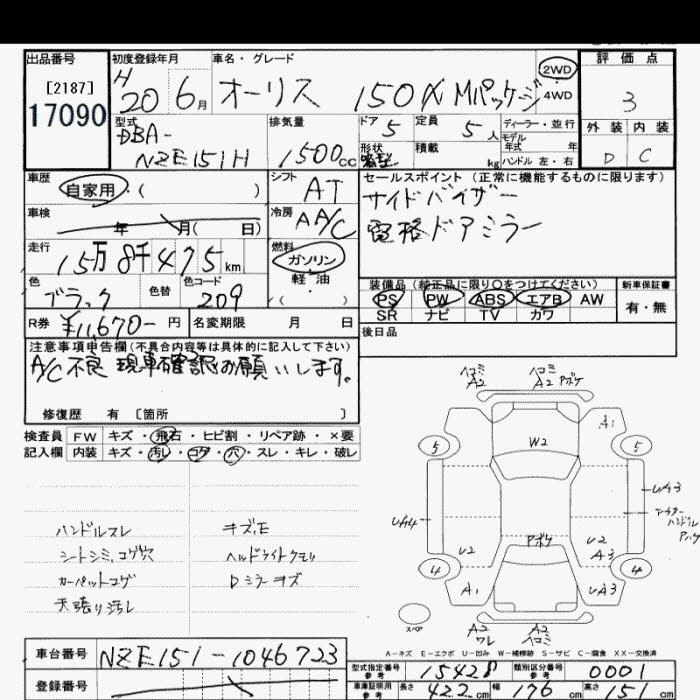 出品番号
[2187]
17090
初度登録年月
H 20 6月
車名・グレード
オーリス 150X Mパッケージ
2WD
4WD
評価点
3
外装 内装
D C
型式
DBA-
NZE151H
排気量
1500cc
ドア 5
定員 5人
形状
積載 kg
ディーラー・並行
モデル年式 年
ハンドル 左・右
車歴
自家用・( )
シフト
AT
車検
年 月( 日)
冷房
AA/C
走行
15万8千475km
燃料
ガソリン
軽油
( )
色
ブラック
色替
色コード
209
R券 ¥11,670-円
名変期限 月 日
セールスポイント(正常に機能するものに限ります)
サイドバイザー
電格ドアミラー
装備品(純正品に限り○をつけてください)
PS PW ABS エアB AW
SR ナビ TV カワ
新車保証書
有・無
後日品
注意事項申告欄(不具合内容等は具体的に記入して下さい)
A/C不良 現車確認お願いします。
修復歴 有 [箇所 ]
検査員 FW キズ・飛石・ヒビ割・リペア跡・×要
記入欄 内装 キズ・汚レ・コゲ・穴・スレ・キレ・破レ
ハンドルスレ
シートシミ、コゲ穴
カーペットコゲ
天張り汚レ
キズ、E
ヘッドライトクモリ
Dミラーキズ
ヘコミ
A2
ヘコミ
A2 Pボケ
A1
5
5
W2
UA3
UA4
アウター
ハンドル
Pハゲ
Pボケ
U2
U2
A3
4
4
A1
UA3
スペア
A2
ワレ
A2
ヘコミ
A-キズ E-エクボ U-凹み W-補修跡 S-サビ C-腐食 XX-交換済
車台番号 NZE151-1046723
登録番号
型式指定番号
参考
15428
類別区分番号
参考
0001
車庫証明用
参考
長さ 422cm 幅 176cm 高さ 151cm